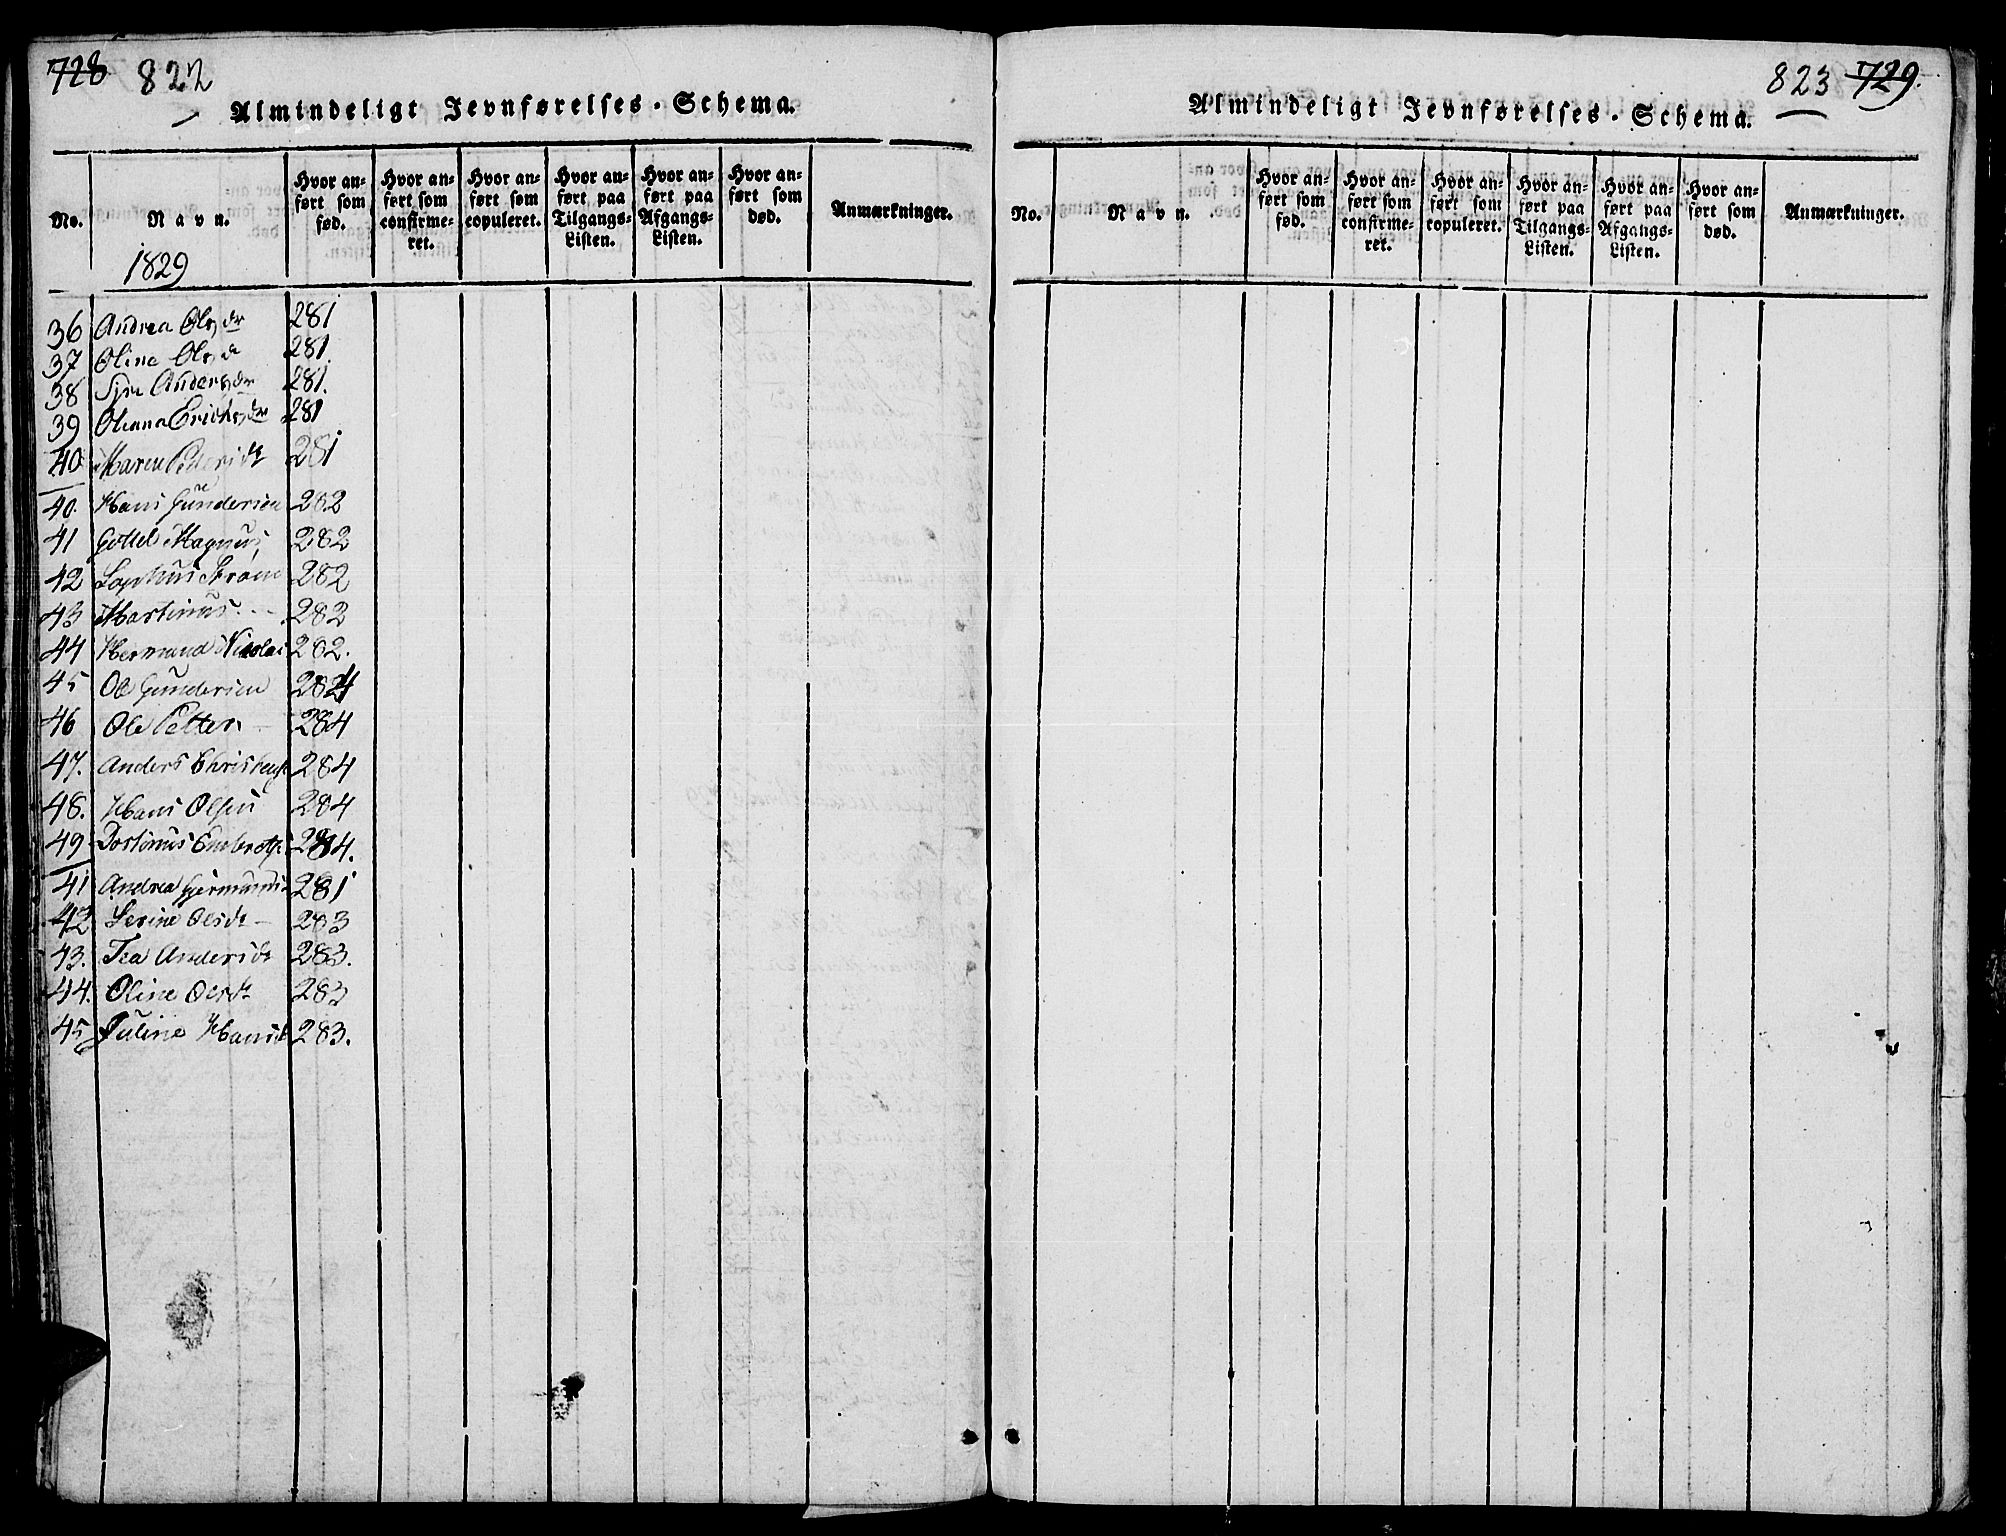 728 822
Almindeligt Jevnførelses-Schema.
No.
Navn.
Hvor an-
ført som
fød.
Hvor an-
ført som
confirme-
ret.
Hvor an-
ført som
copuleret.
Hvor an-
ført paa
Tilgangs-
Listen.
Hvor an-
ført paa
Afgangs-
Listen.
Hvor an-
ført som
død.
Anmærkninger.
1829
36 Andrea Olsdr 281
37 Oline Olsd 281.
38 Andersdr 281.
39 Olianna Erichsdr 281
40 Maren Pedersdr 281
40. Hans Gundersen 282
41 Gottel Magnus 282
42 Sophus Strøm 282
43 Martinus 282
44 Hermand Nicolai 282.
45 Ole Gundersen 284
46 Ole Petter 284
47. Anders Christens 284
48. Hans Olsen 284
49 Embretse 284.
41 Andrea 281
42 Serine Olsdr 283
43. Tea Andersdr 283.
44. Oline Olsdr 283
45 Juline Hansd 283.
823 729.
Almindeligt Jevnførelses-Schema.
No.
Navn.
Hvor an-
ført som
fød.
Hvor an-
ført som
confirme-
ret.
Hvor an-
ført som
copuleret.
Hvor an-
ført paa
Tilgangs-
Listen.
Hvor an-
ført paa
Afgangs-
Listen.
Hvor an-
ført som
død.
Anmærkninger.